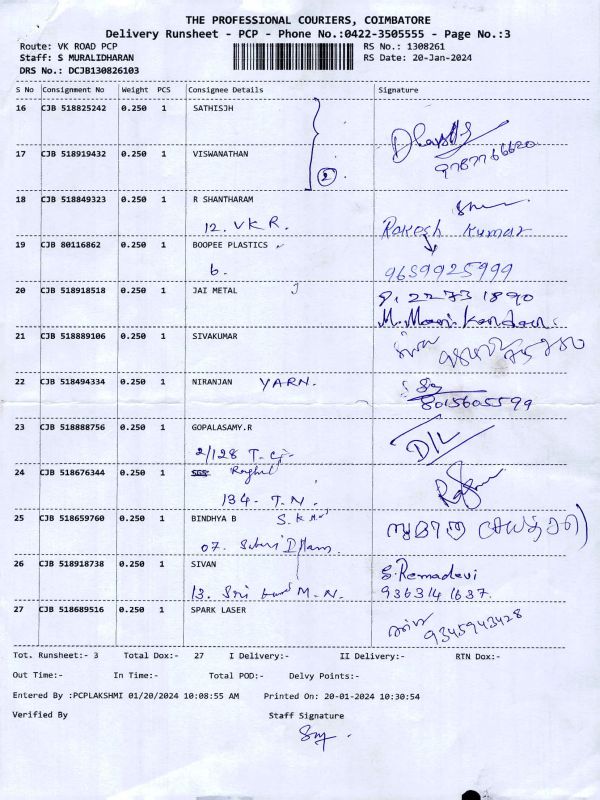 THE PROFESSIONAL COURIERS, COIMBATORE
Delivery Runsheet - PCP - Phone No.:0422-3505555 - Page No.:3
Route: VK ROAD PCP
RS No.: 1308261
Staff: S MURALIDHARAN
RS Date: 20-Jan-2024
DRS No.: DCJB130826103
S No Consignment No Weight PCS Consignee Details Signature
16 CJB 518825242 0.250 1 SATHISJH
17 CJB 518919432 0.250 1 VISWANATHAN
2
18 CJB 518849323 0.250 1 R SHANTHARAM
12. V K R. Rakesh Kumar
19 CJB 80116862 0.250 1 BOOPEE PLASTICS
6. 9659925999
20 CJB 518918518 0.250 1 JAI METAL
M. Mani Kandan.
21 CJB 518889106 0.250 1 SIVAKUMAR
22 CJB 518494334 0.250 1 NIRANJAN YARN.
8015605599
23 CJB 518888756 0.250 1 GOPALASAMY.R
2/128 D/L
24 CJB 518676344 0.250 1
134. T.N.
25 CJB 518659760 0.250 1 BINDHYA B
07.
26 CJB 518918738 0.250 1 SIVAN S.Remadevi
13. Sri M.N. 9363141637.
27 CJB 518689516 0.250 1 SPARK LASER
9345943428
Tot. Runsheet:- 3 Total Dox:- 27 I Delivery:- II Delivery:- RTN Dox:-
Out Time:- In Time:- Total POD:- Delvy Points:-
Entered By :PCPLAKSHMI 01/20/2024 10:08:55 AM Printed On: 20-01-2024 10:30:54
Verified By Staff Signature